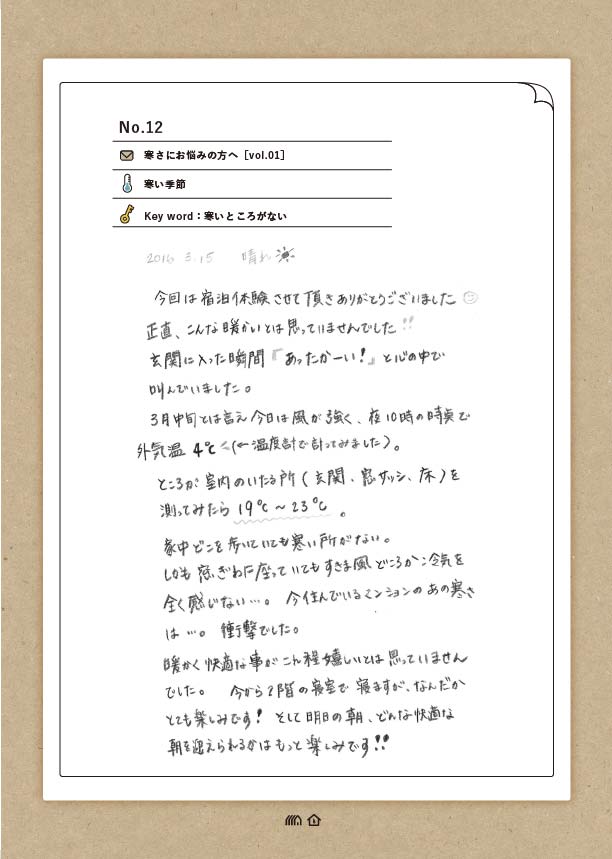 No.12
寒さにお悩みの方へ［vol.01］
寒い季節
Key word：寒いところがない
2016 3.15 晴れ
今回は宿泊体験させて頂きありがとうございました
正直、こんな暖かいとは思っていませんでした!!
玄関に入った瞬間『あったかーい！』と心の中で
叫んでいました。
3月中旬とは言え今日は風が強く、夜10時の時点で
外気温 4℃ (←温度計で計ってみました)。
ところが室内のいたる所(玄関、窓サッシ、床)を
測ってみたら 19℃〜23℃。
家中どこを歩いていても寒い所がない。
しかも窓ぎわに座っていてもすきま風どころか冷気を
全く感じない…。 今住んでいるマンションのあの寒さ
は…。 衝撃でした。
暖かく快適な事がこん程嬉しいとは思っていません
でした。 今から2階の寝室で寝ますが、なんだか
とても楽しみです！ そして明日の朝、どんな快適な
朝を迎えられるかはもっと楽しみです!!